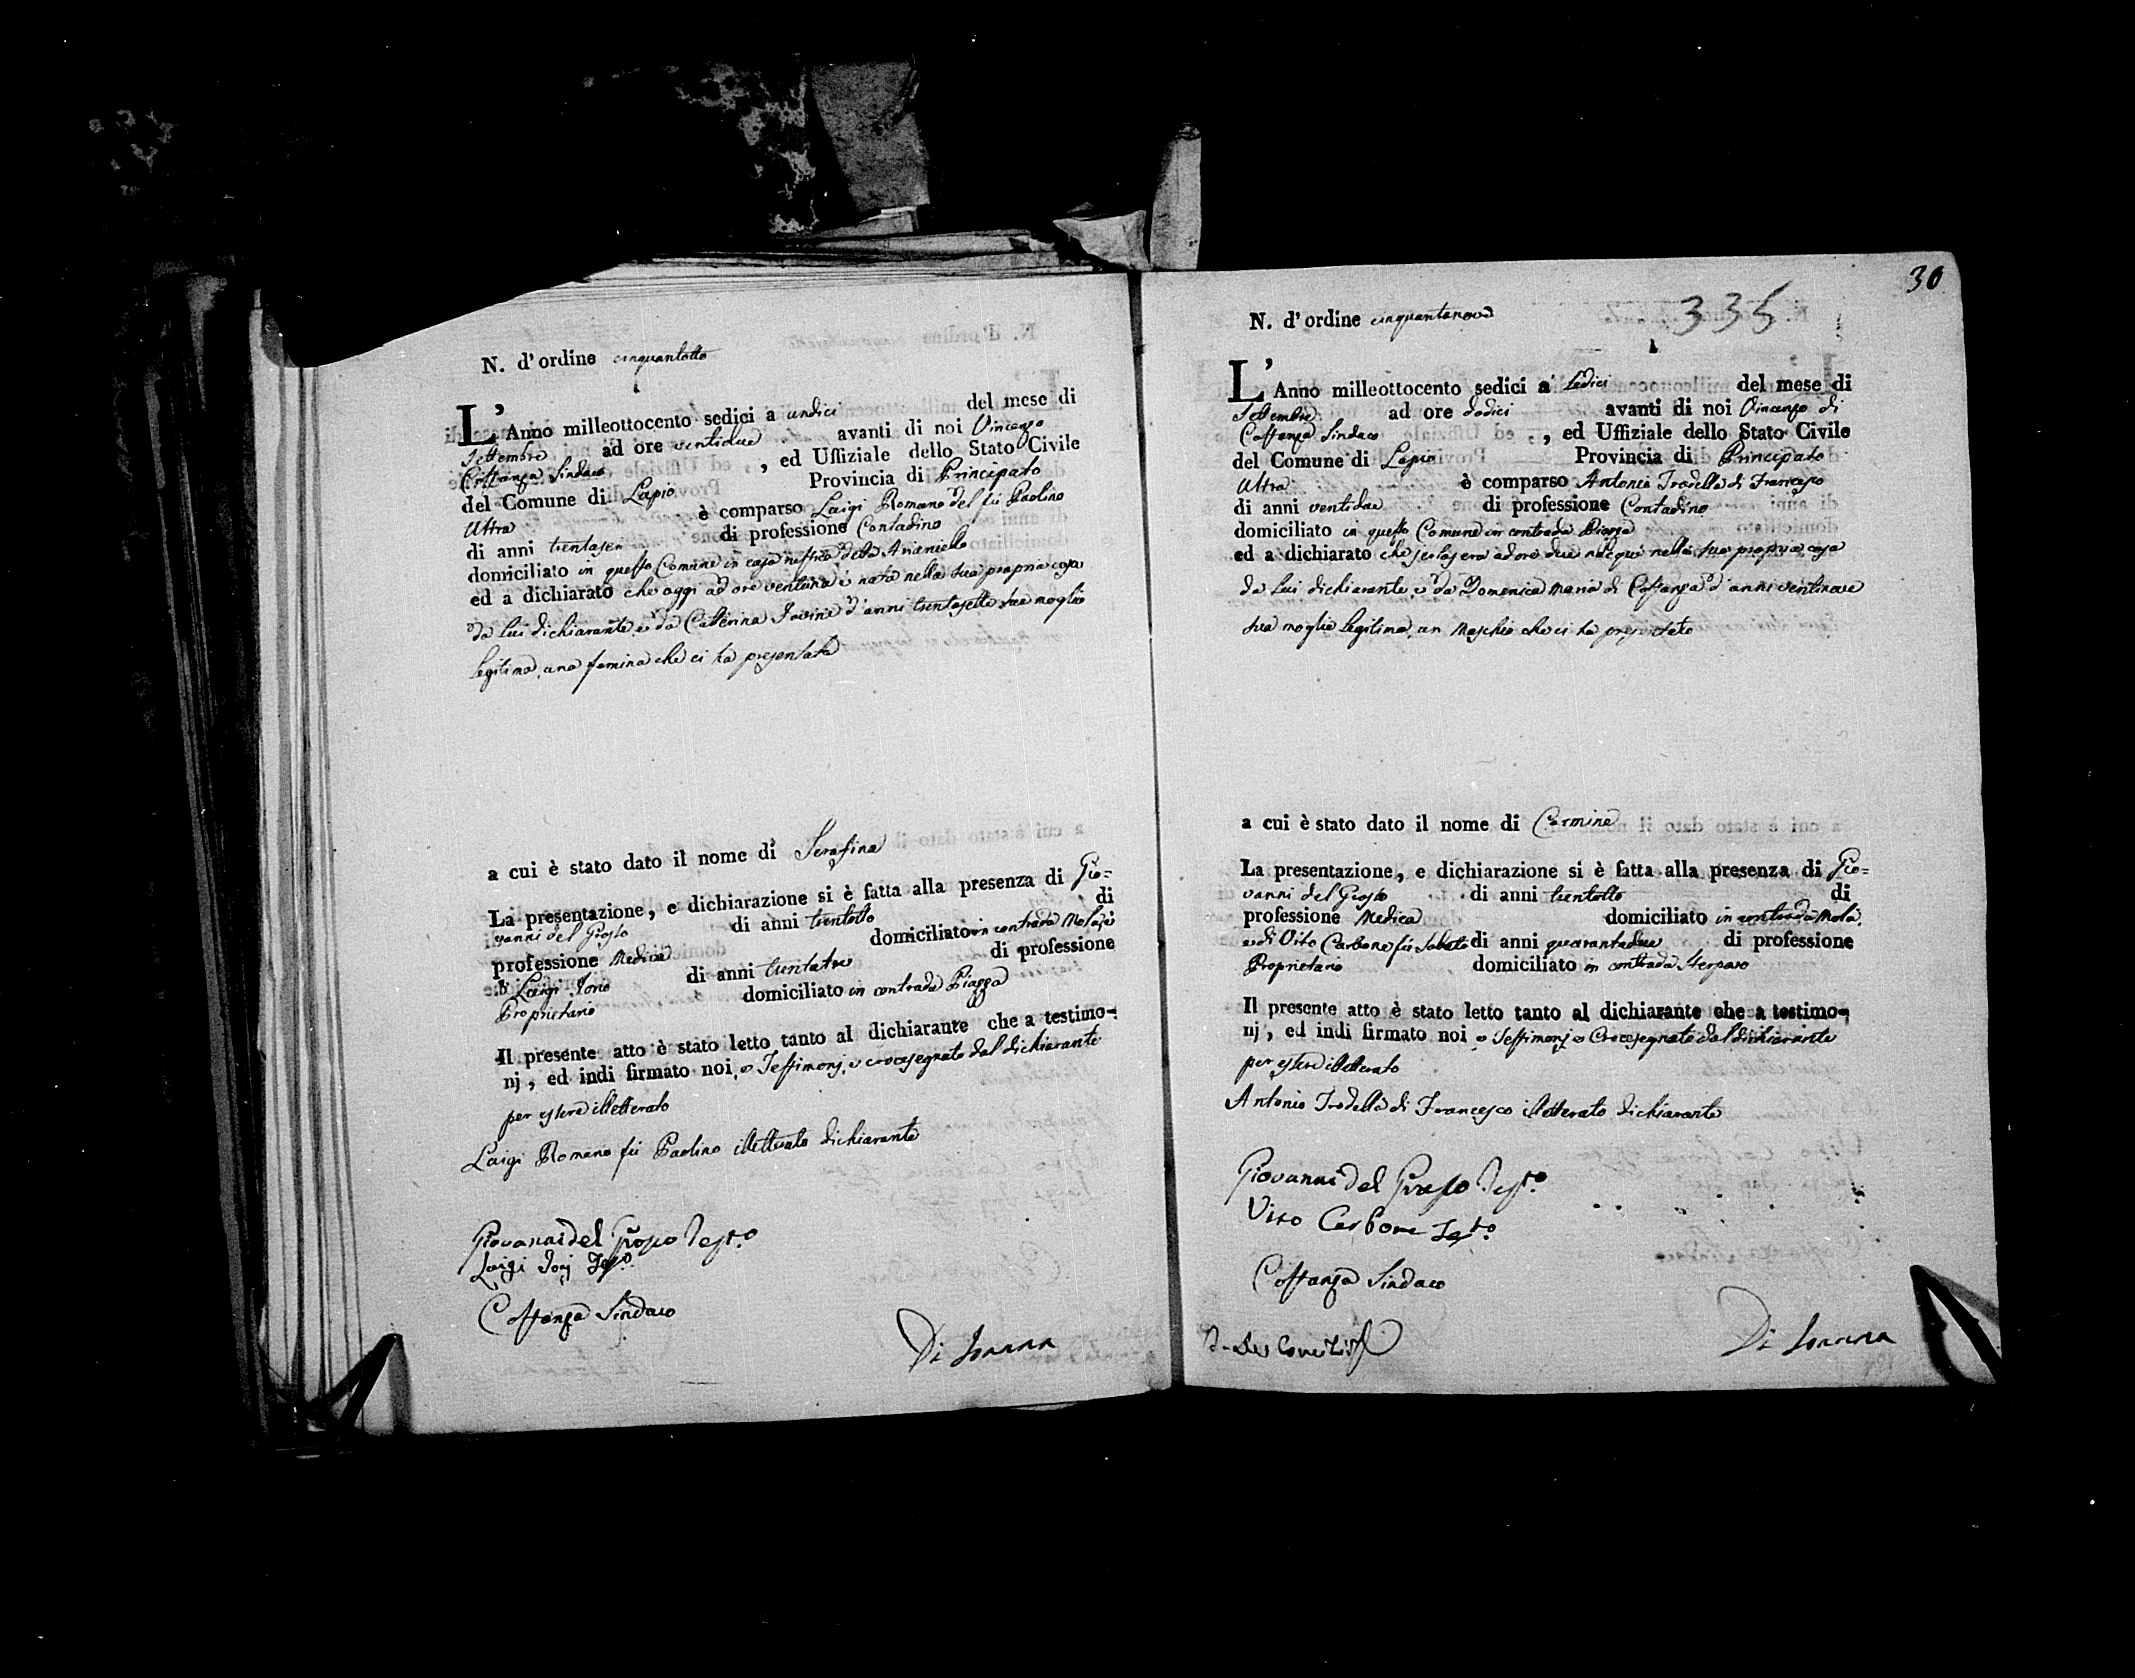 N. d'ordine cinquantotto
L'Anno milleottocento sedici a undici del mese di
Settembre ad ore ventidue avanti di noi Vincenzo
Costanza Sindaco, ed Uffiziale dello Stato Civile
del Comune di Lapio Provincia di Principato
Ultra è comparso Luigi Romano del fù Paolino
di anni trentasei di professione Contadino
domiciliato in questo Comune in casa
ed a dichiarato che oggi ad ore ventuna è nata nella sua propria casa
da lui dichiarante, e da Catterina Iovine d'anni trentasette sua moglie
legitima, una femina che ci ha presentata
a cui è stato dato il nome di Serafina
La presentazione, e dichiarazione si è fatta alla presenza di Gio=
vanni del Grosso di anni trentotto di
professione Medico domiciliato in contrada Mola, e
di Luigi Iorio di anni trentatre di professione
Proprietario domiciliato in contrada Piazza
Il presente atto è stato letto tanto al dichiarante che a testimo-
nj, ed indi firmato noi, e Testimonj, e crocesegnato dal dichiarante
per essere illetterato
Luigi Romano fù Paolino illetterato dichiarante
Giovanni del Grosso Testo
Luigi Iorj Testo
Costanza Sindaco
Di Ioanna
30
335
N. d'ordine cinquantanove
L'Anno milleottocento sedici a' sedici del mese di
Settembre ad ore dodici avanti di noi Vincenzo di
Costanza Sindaco, ed Uffiziale dello Stato Civile
del Comune di Lapio Provincia di Principato
Ultra è comparso Antonio Trodella di Francesco
di anni ventidue di professione Contadino
domiciliato in questo Comune in contrada Piazza
ed a dichiarato che jeri sera ad ore due nacque nella sua propria casa
da lui dichiarante, e da Domenica Maria di Costanza d'anni ventinove
sua moglie legitima, un Maschio che ci ha presentato
a cui è stato dato il nome di Carmine
La presentazione, e dichiarazione si è fatta alla presenza di Gio=
vanni del Grosso di anni trentotto di
professione Medico domiciliato in contrada Mola,
e di Vito Carbone fù Sabato di anni quarantadue di professione
Proprietario domiciliato in contrada Sterparo
Il presente atto è stato letto tanto al dichiarante che a testimo-
nj, ed indi firmato noi, e Testimonj e Crocesegnato dal dichiarante
per essere illetterato
Antonio Trodella di Francesco illetterato dichiarante
Giovanni del Grosso Testo
Vito Carbone Testo
Costanza Sindaco
Di Ioanna